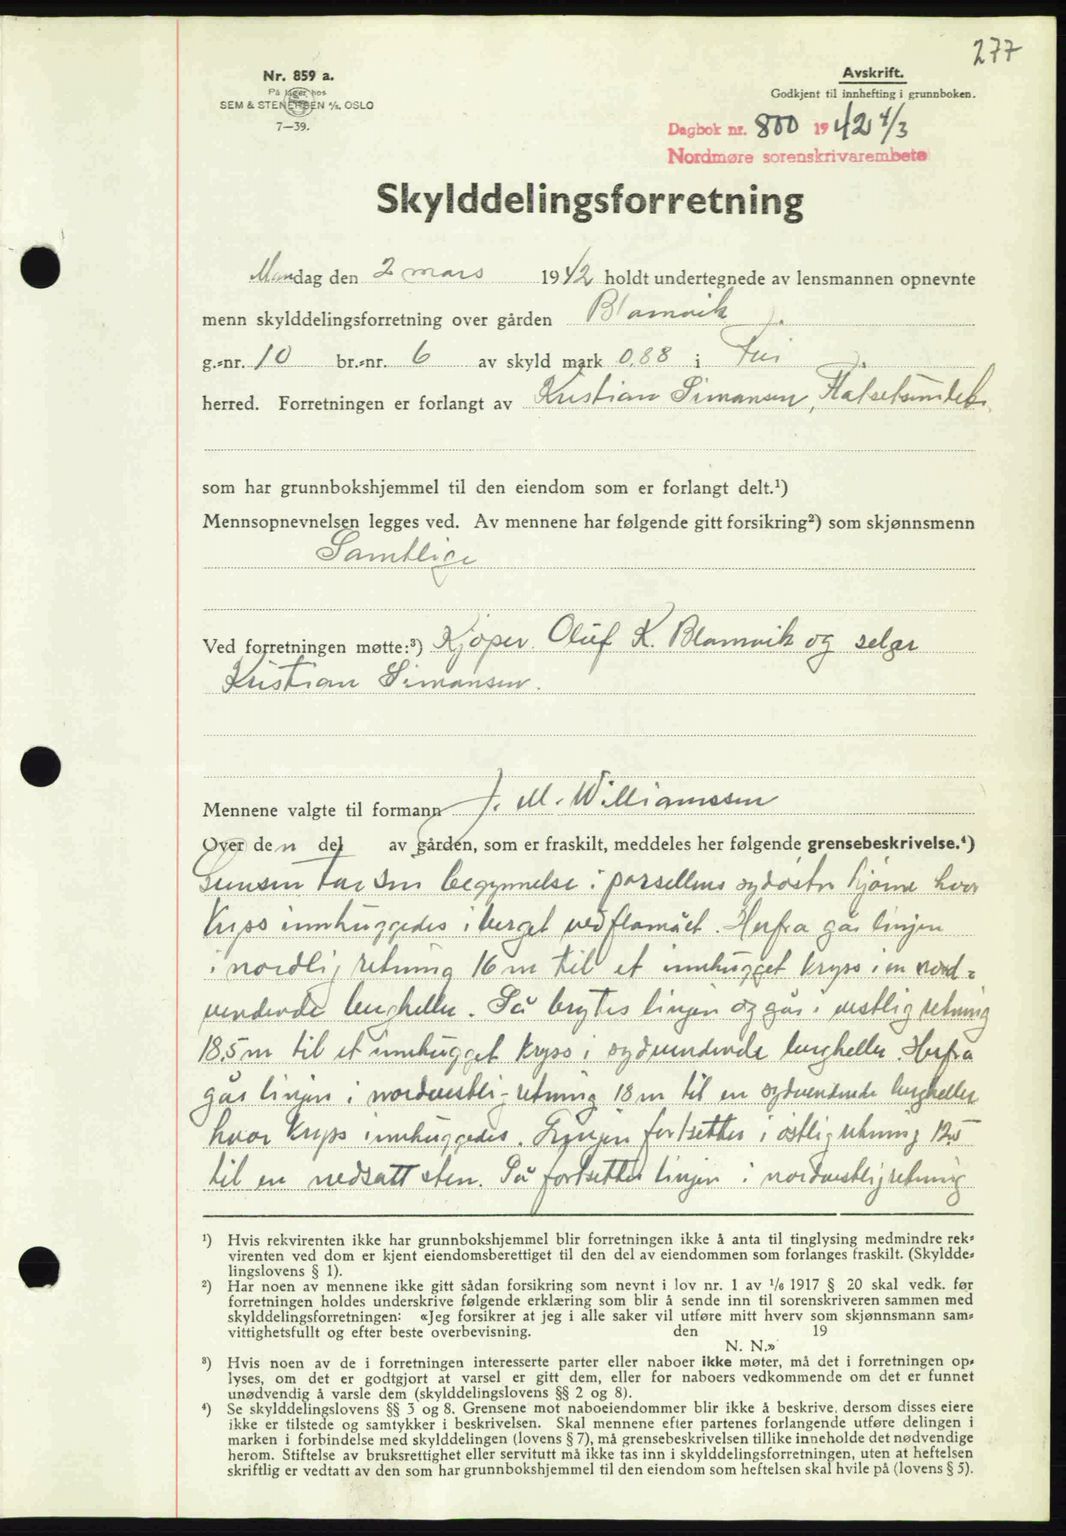 277
Nr. 859 a.
På lager hos
SEM & STENERSEN A/S, OSLO
7—39.
Avskrift.
Godkjent til innhefting i grunnboken.
Dagbok nr. 800 1942 4/3
Nordmøre sorenskrivarembete
Skylddelingsforretning
Mandag den 2 mars 1942 holdt undertegnede av lensmannen opnevnte
menn skylddelingsforretning over gården Blamvik
g.-nr. 10 br.-nr. 6 av skyld mark 0,88 i
herred. Forretningen er forlangt av Kristian Simansen,
som har grunnbokshjemmel til den eiendom som er forlangt delt.¹)
Mennsopnevnelsen legges ved. Av mennene har følgende gitt forsikring²) som skjønnsmenn
Samtlige
Ved forretningen møtte:³) Kjøper Oluf K. Blamvik og selger
Kristian Simansen.
Mennene valgte til formann J. M. Williamssen
Over den del av gården, som er fraskilt, meddeles her følgende grensebeskrivelse.⁴)
Grensen tar sin begynnelse i parsellens sydøstre hjørne hvor
kryss innhuggedes i berget ved flomålet. Herfra går linjen
i nordlig retning 16 m til et innhugget kryss i en nord-
vendende berghelle. Så brytes linjen og går i vestlig retning
18,5 m til et innhugget kryss i sydvendende berghelle. Herfra
går linjen i nordvestlig retning 18 m til en sydvendende berghelle
hvor kryss innhuggedes. Linjen fortsetter i østlig retning 12,5
til en nedsatt sten. Så fortsetter linjen i nordvestlig retning
¹) Hvis rekvirenten ikke har grunnbokshjemmel blir forretningen ikke å anta til tinglysing medmindre rek-
virenten ved dom er kjent eiendomsberettiget til den del av eiendommen som forlanges fraskilt. (Skyldde-
lingslovens § 1).
²) Har noen av mennene ikke gitt sådan forsikring som nevnt i lov nr. 1 av 1/6 1917 § 20 skal vedk. før
forretningen holdes underskrive følgende erklæring som blir å sende inn til sorenskriveren sammen med
skylddelingsforretningen: «Jeg forsikrer at jeg i alle saker vil utføre mitt hverv som skjønnsmann sam-
vittighetsfullt og efter beste overbevisning. den 19
N. N.»
³) Hvis noen av de i forretningen interesserte parter eller naboer ikke møter, må det i forretningen op-
lyses, om det er godtgjort at varsel er gitt dem, eller for naboers vedkommende om det er funnet
unødvendig å varsle dem (skylddelingslovens §§ 2 og 8).
⁴) Se skylddelingslovens §§ 3 og 8. Grensene mot naboeiendommer blir ikke å beskrive, dersom disses eiere
ikke er tilstede og samtykker i beskrivelsen. Skal mennene efter partenes forlangende utføre delingen i
marken i forbindelse med skylddelingen (lovens § 7), må grensebeskrivelsen tillike inneholde det nødvendige
herom. Stiftelse av bruksrettighet eller servitutt må ikke tas inn i skylddelingsforretningen, uten at heftelsen
skriftlig er vedtatt av den som har grunnbokshjemmel til den eiendom som heftelsen skal hvile på (lovens § 5).